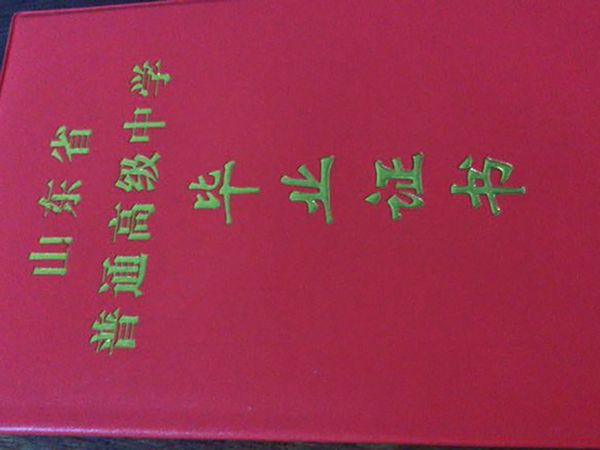 山东省
普通高级中学
毕业证书